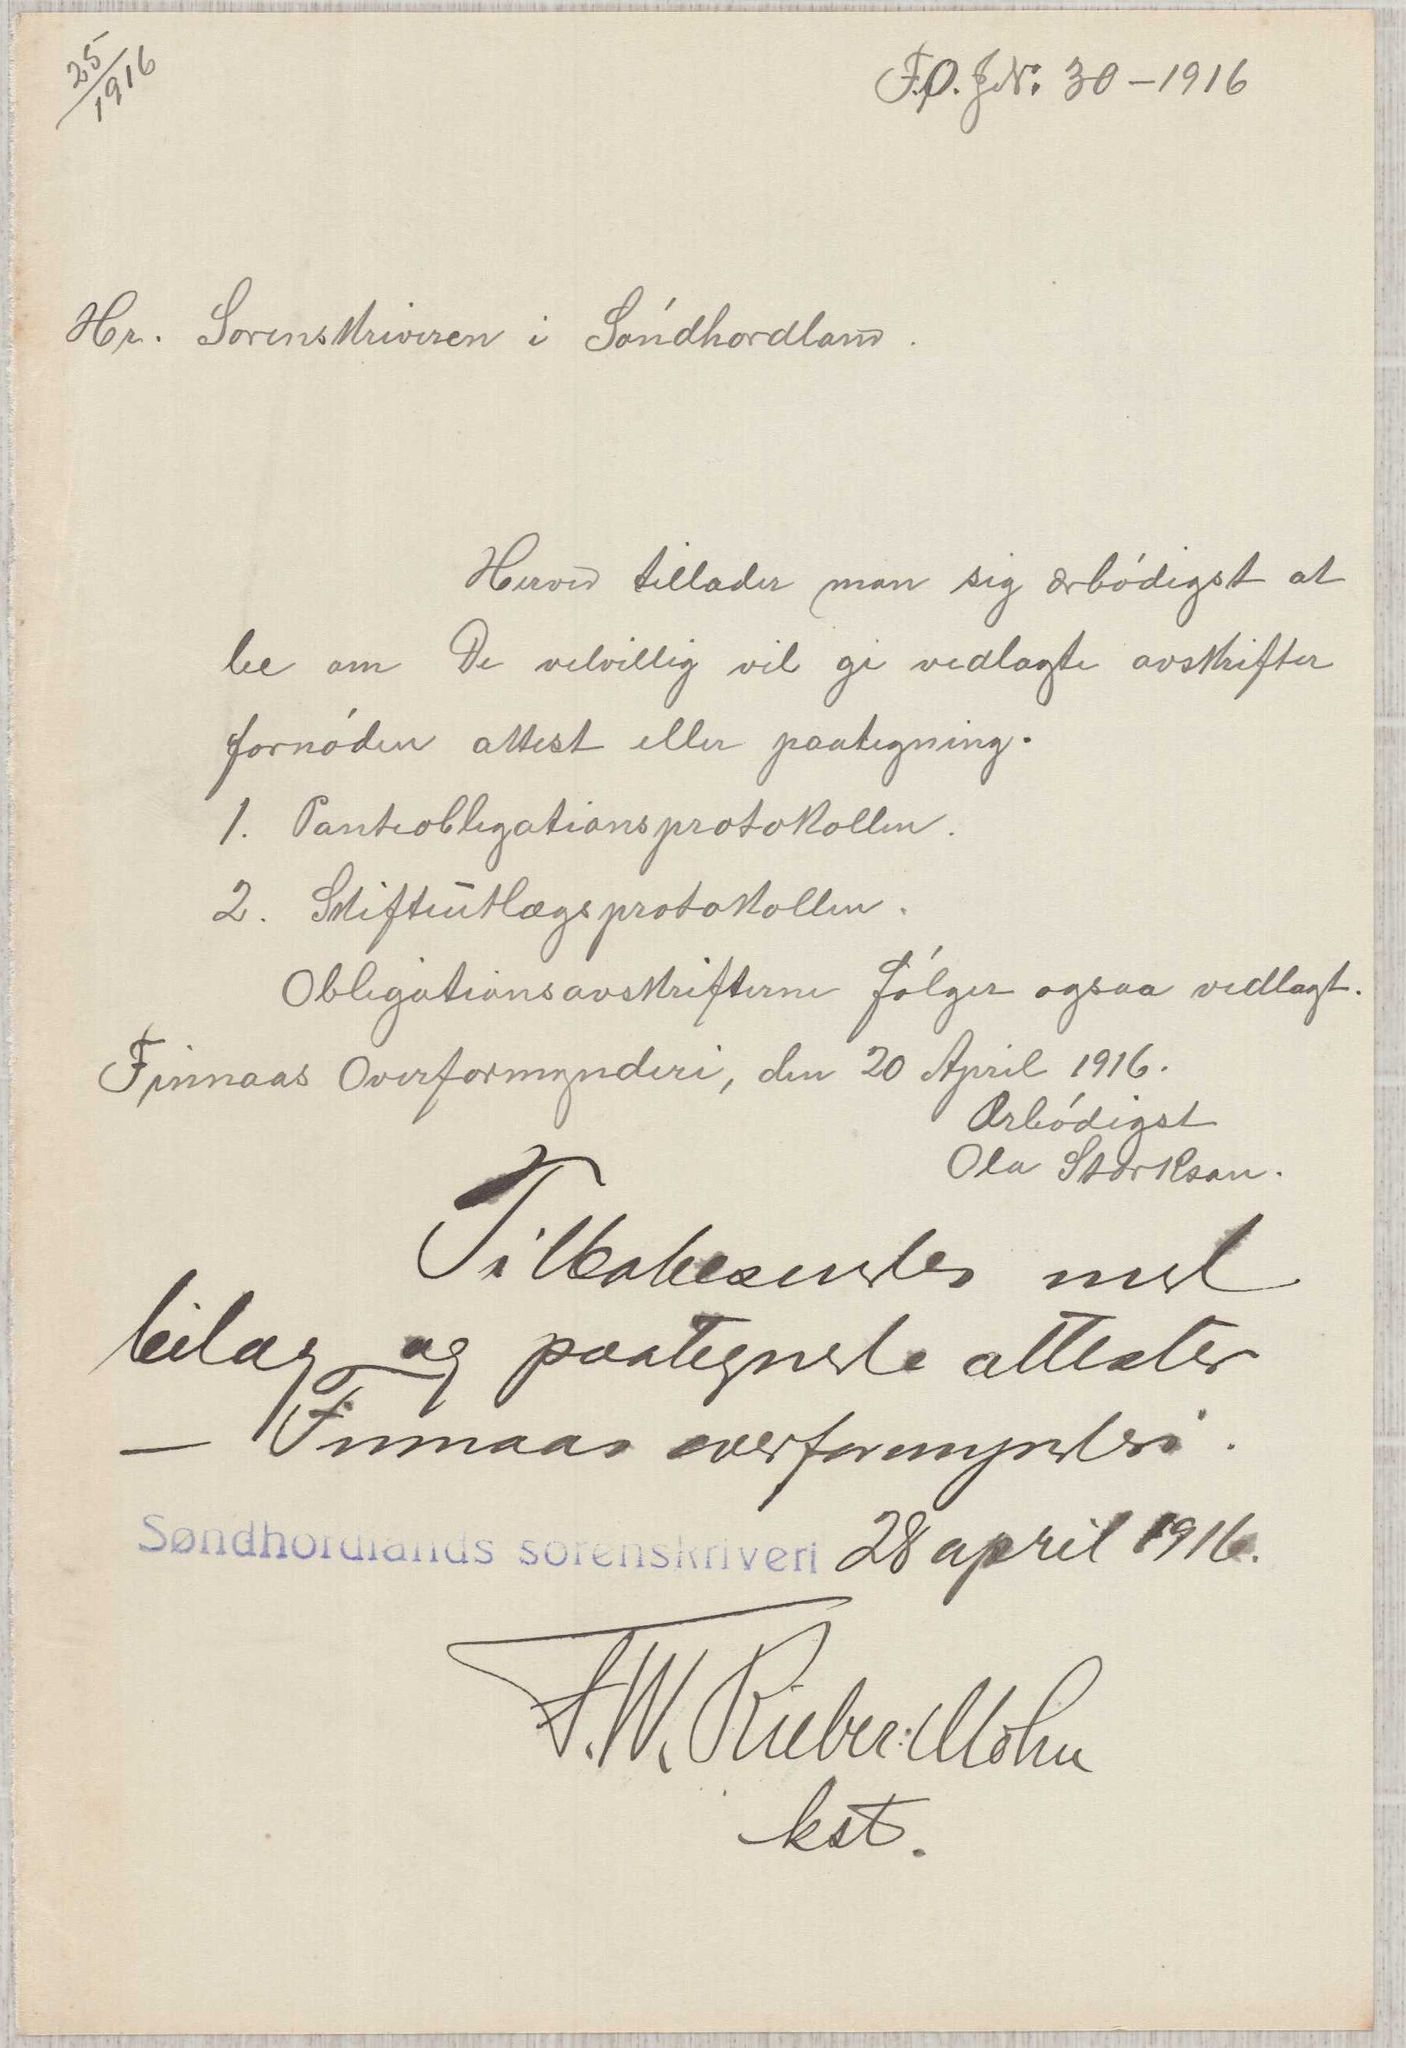 25/1916
F.O. J.Nr. 30 – 1916
Hr. Sorenskriveren i Søndhordland.
Herved tillader man sig ærbødigst at
be om De velvillig vil gi vedlagte avskrifter
fornøden attest eller paategning.
1. Panteobligationsprotokollen.
2. Skifteutlægsprotokollen.
Obligationsavskrifterne følger ogsaa vedlagt.
Finnaas Overformynderi, den 20 April 1916.
Ærbødigst
Ola Størkson.
Tilbakesendes med
bilag og paategnede attester
– Finnaas overformynderi.
Søndhordlands sorenskriveri 28 april 1916.
F.W. Rieber-Mohn
kst.